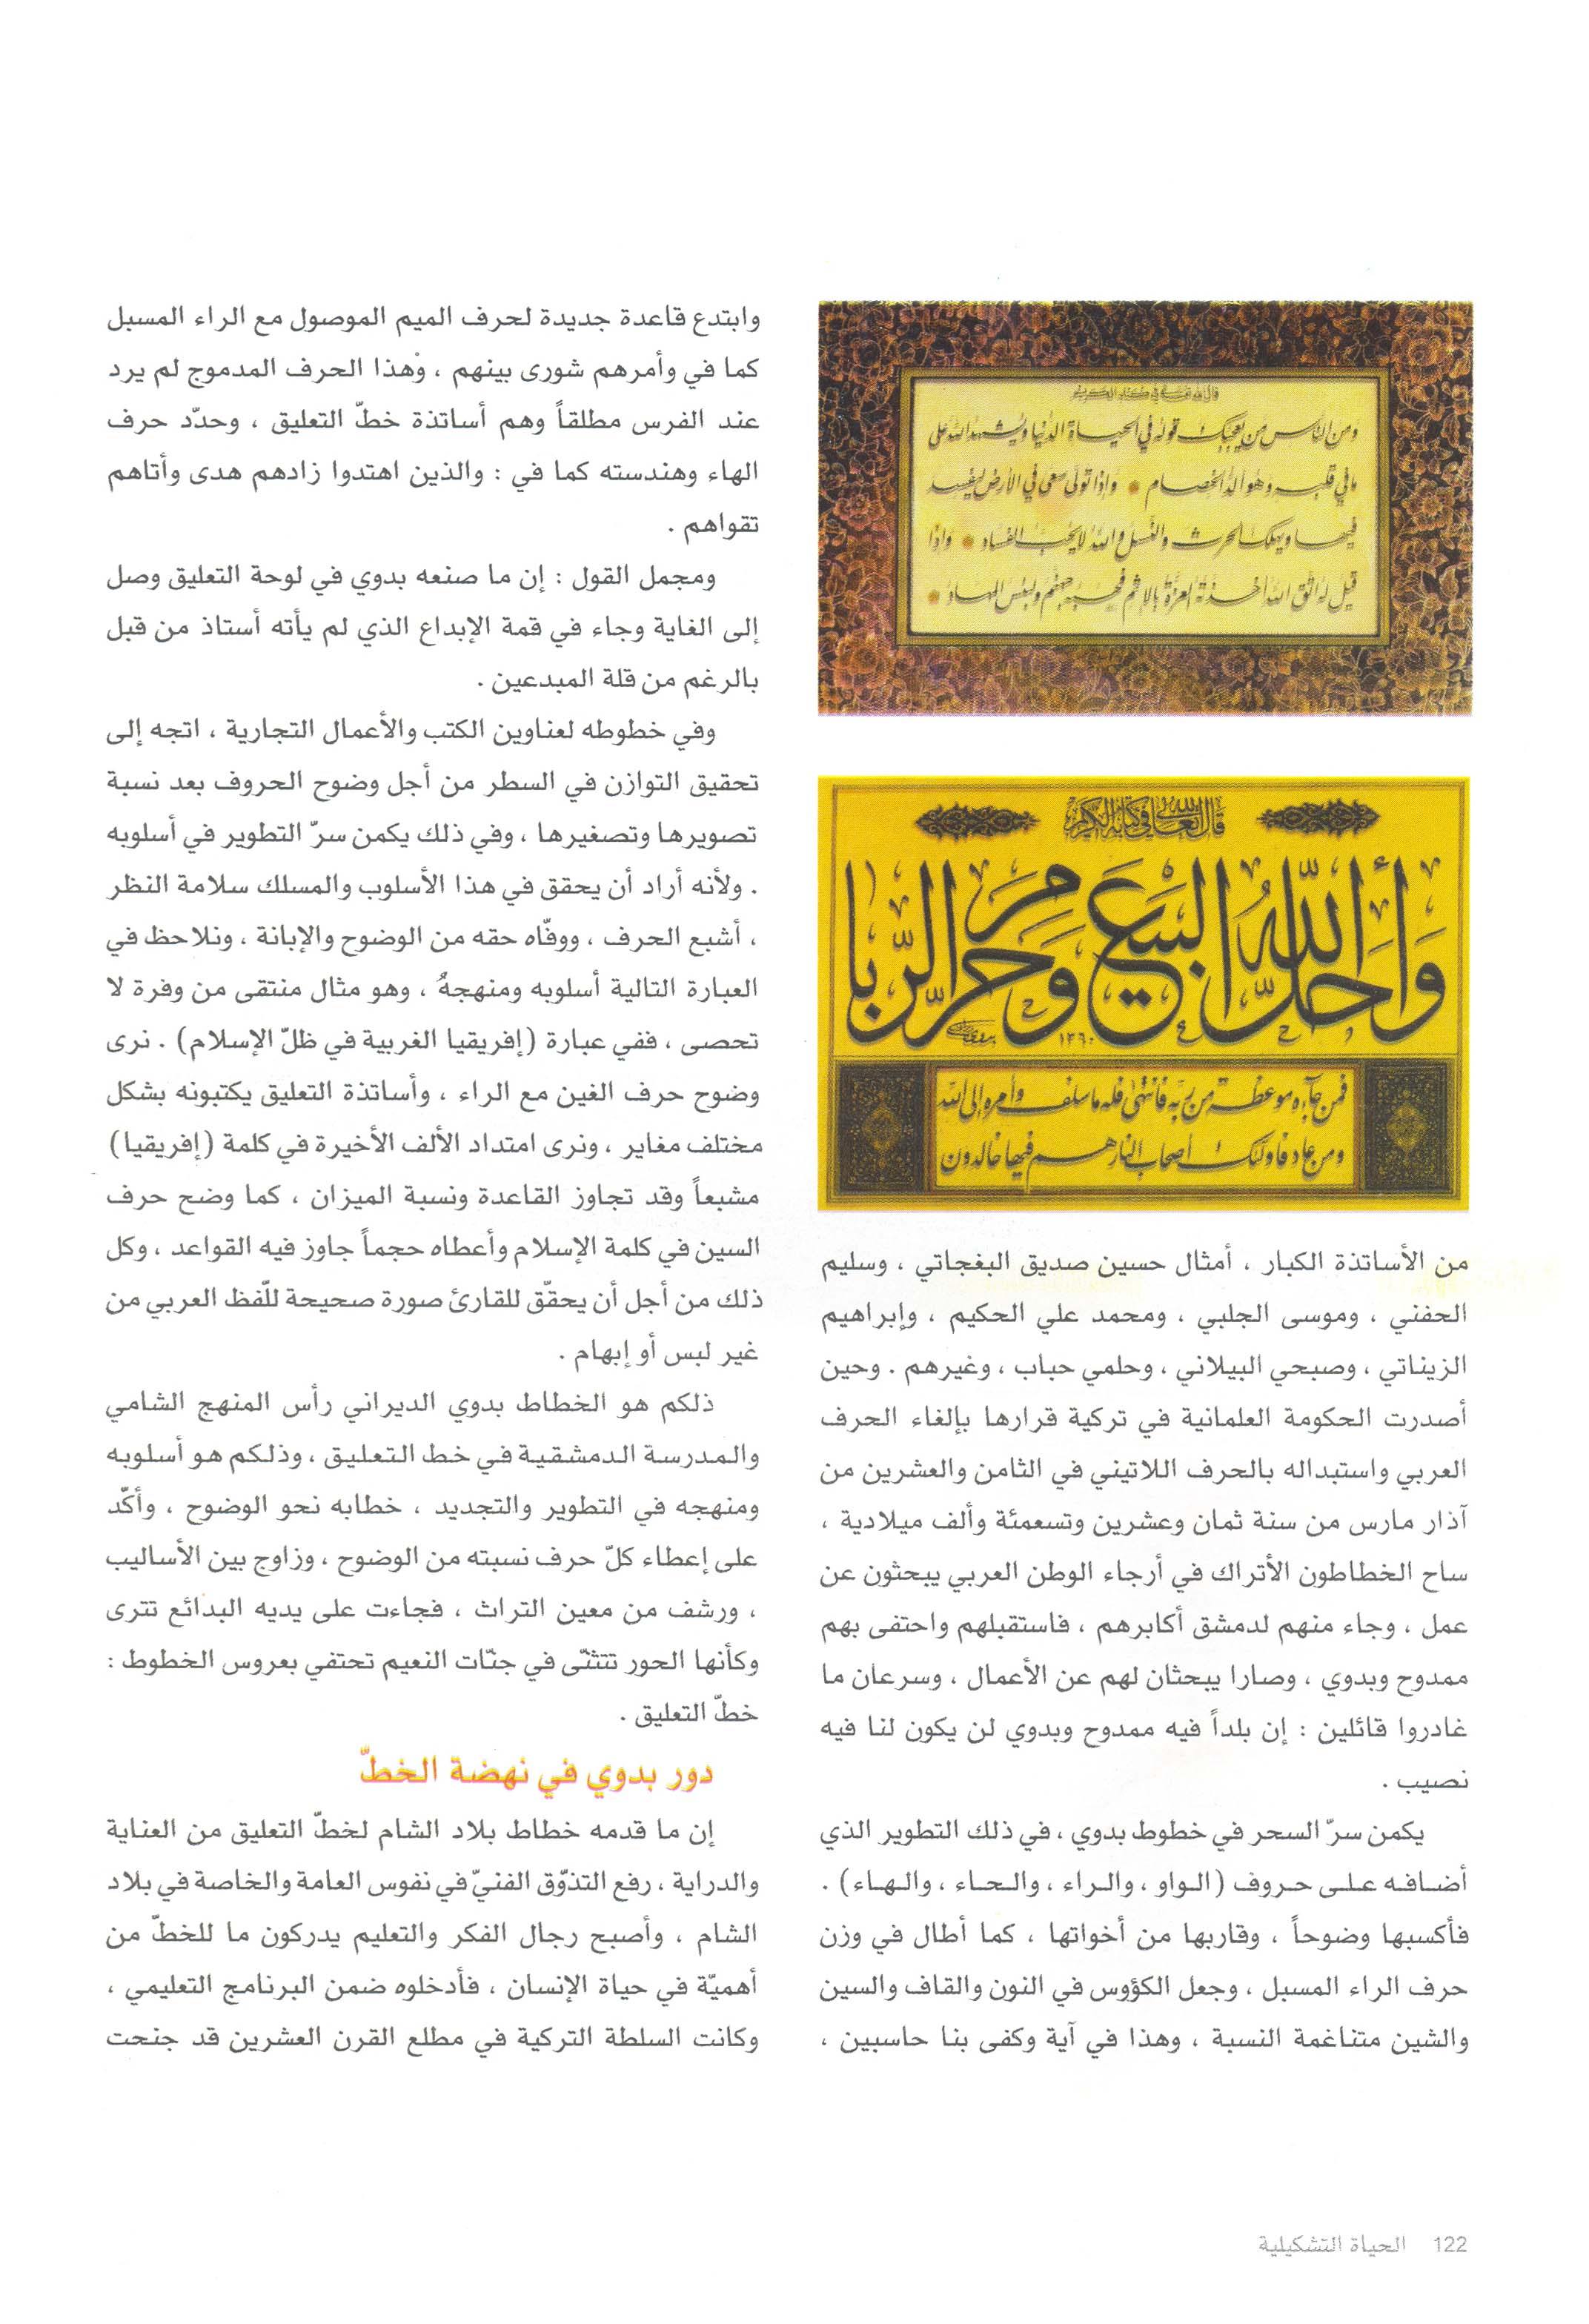 قال الله تعالى في كتابه الكريم
ومن الناس من يعجبك قوله في الحياة الدنيا ويشهد الله على
ما في قلبه وهو ألد الخصام وإذا تولى سعى في الأرض ليفسد
فيها ويهلك الحرث والنسل والله لا يحب الفساد وإذا
قيل له اتق الله أخذته العزة بالإثم فحسبه جهنم ولبئس المهاد
قال الله تعالى في كتابه الكريم
وَأَحَلَّ اللّٰهُ الْبَيْعَ وَحَرَّمَ الرِّبَا
١٣٦٠
فمن جاءه موعظة من ربه فانتهى فله ما سلف وأمره إلى الله
ومن عاد فأولئك أصحاب النار هم فيها خالدون
من الأساتذة الكبار ، أمثال حسين صديق البغجاتي ، وسليم
الحفني ، وموسى الجلبي ، ومحمد علي الحكيم ، وإبراهيم
الزيناتي ، وصبحي البيلاني ، وحلمي حباب ، وغيرهم . وحين
أصدرت الحكومة العلمانية في تركية قرارها بإلغاء الحرف
العربي واستبداله بالحرف اللاتيني في الثامن والعشرين من
آذار مارس من سنة ثمان وعشرين وتسعمئة وألف ميلادية ،
ساح الخطاطون الأتراك في أرجاء الوطن العربي يبحثون عن
عمل ، وجاء منهم لدمشق أكابرهم ، فاستقبلهم واحتفى بهم
ممدوح وبدوي ، وصارا يبحثان لهم عن الأعمال ، وسرعان ما
غادروا قائلين : إن بلداً فيه ممدوح وبدوي لن يكون لنا فيه
نصيب .
يكمن سرّ السحر في خطوط بدوي ، في ذلك التطوير الذي
أضافه على حروف (الواو ، والراء ، والحاء ، والهاء) .
فأكسبها وضوحاً ، وقاربها من أخواتها ، كما أطال في وزن
حرف الراء المسبل ، وجعل الكؤوس في النون والقاف والسين
والشين متناغمة النسبة ، وهذا في آية وكفى بنا حاسبين ،
وابتدع قاعدة جديدة لحرف الميم الموصول مع الراء المسبل
كما في وأمرهم شورى بينهم ، وْهذا الحرف المدموج لم يرد
عند الفرس مطلقاً وهم أساتذة خطّ التعليق ، وحدّد حرف
الهاء وهندسته كما في : والذين اهتدوا زادهم هدى وأتاهم
تقواهم .
ومجمل القول : إن ما صنعه بدوي في لوحة التعليق وصل
إلى الغاية وجاء في قمة الإبداع الذي لم يأته أستاذ من قبل
بالرغم من قلة المبدعين .
وفي خطوطه لعناوين الكتب والأعمال التجارية ، اتجه إلى
تحقيق التوازن في السطر من أجل وضوح الحروف بعد نسبة
تصويرها وتصغيرها ، وفي ذلك يكمن سرّ التطوير في أسلوبه
. ولأنه أراد أن يحقق في هذا الأسلوب والمسلك سلامة النظر
، أشبع الحرف ، ووفّاه حقه من الوضوح والإبانة ، ونلاحظ في
العبارة التالية أسلوبه ومنهجهُ ، وهو مثال منتقى من وفرة لا
تحصى ، ففي عبارة (إفريقيا الغربية في ظلّ الإسلام) . نرى
وضوح حرف الغين مع الراء ، وأساتذة التعليق يكتبونه بشكل
مختلف مغاير ، ونرى امتداد الألف الأخيرة في كلمة (إفريقيا)
مشبعاً وقد تجاوز القاعدة ونسبة الميزان ، كما وضح حرف
السين في كلمة الإسلام وأعطاه حجماً جاوز فيه القواعد ، وكل
ذلك من أجل أن يحقّق للقارئ صورة صحيحة للّفظ العربي من
غير لبس أو إبهام .
ذلكم هو الخطاط بدوي الديراني رأس المنهج الشامي
والمدرسة الدمشقية في خط التعليق ، وذلكم هو أسلوبه
ومنهجه في التطوير والتجديد ، خطابه نحو الوضوح ، وأكّد
على إعطاء كلّ حرف نسبته من الوضوح ، وزاوج بين الأساليب
، ورشف من معين التراث ، فجاءت على يديه البدائع تترى
وكأنها الحور تتثنّى في جنّات النعيم تحتفي بعروس الخطوط :
خطّ التعليق .
دور بدوي في نهضة الخطّ
إن ما قدمه خطاط بلاد الشام لخطّ التعليق من العناية
والدراية ، رفع التذوّق الفنيّ في نفوس العامة والخاصة في بلاد
الشام ، وأصبح رجال الفكر والتعليم يدركون ما للخطّ من
أهميّة في حياة الإنسان ، فأدخلوه ضمن البرنامج التعليمي ،
وكانت السلطة التركية في مطلع القرن العشرين قد جنحت
122 الحياة التشكيلية